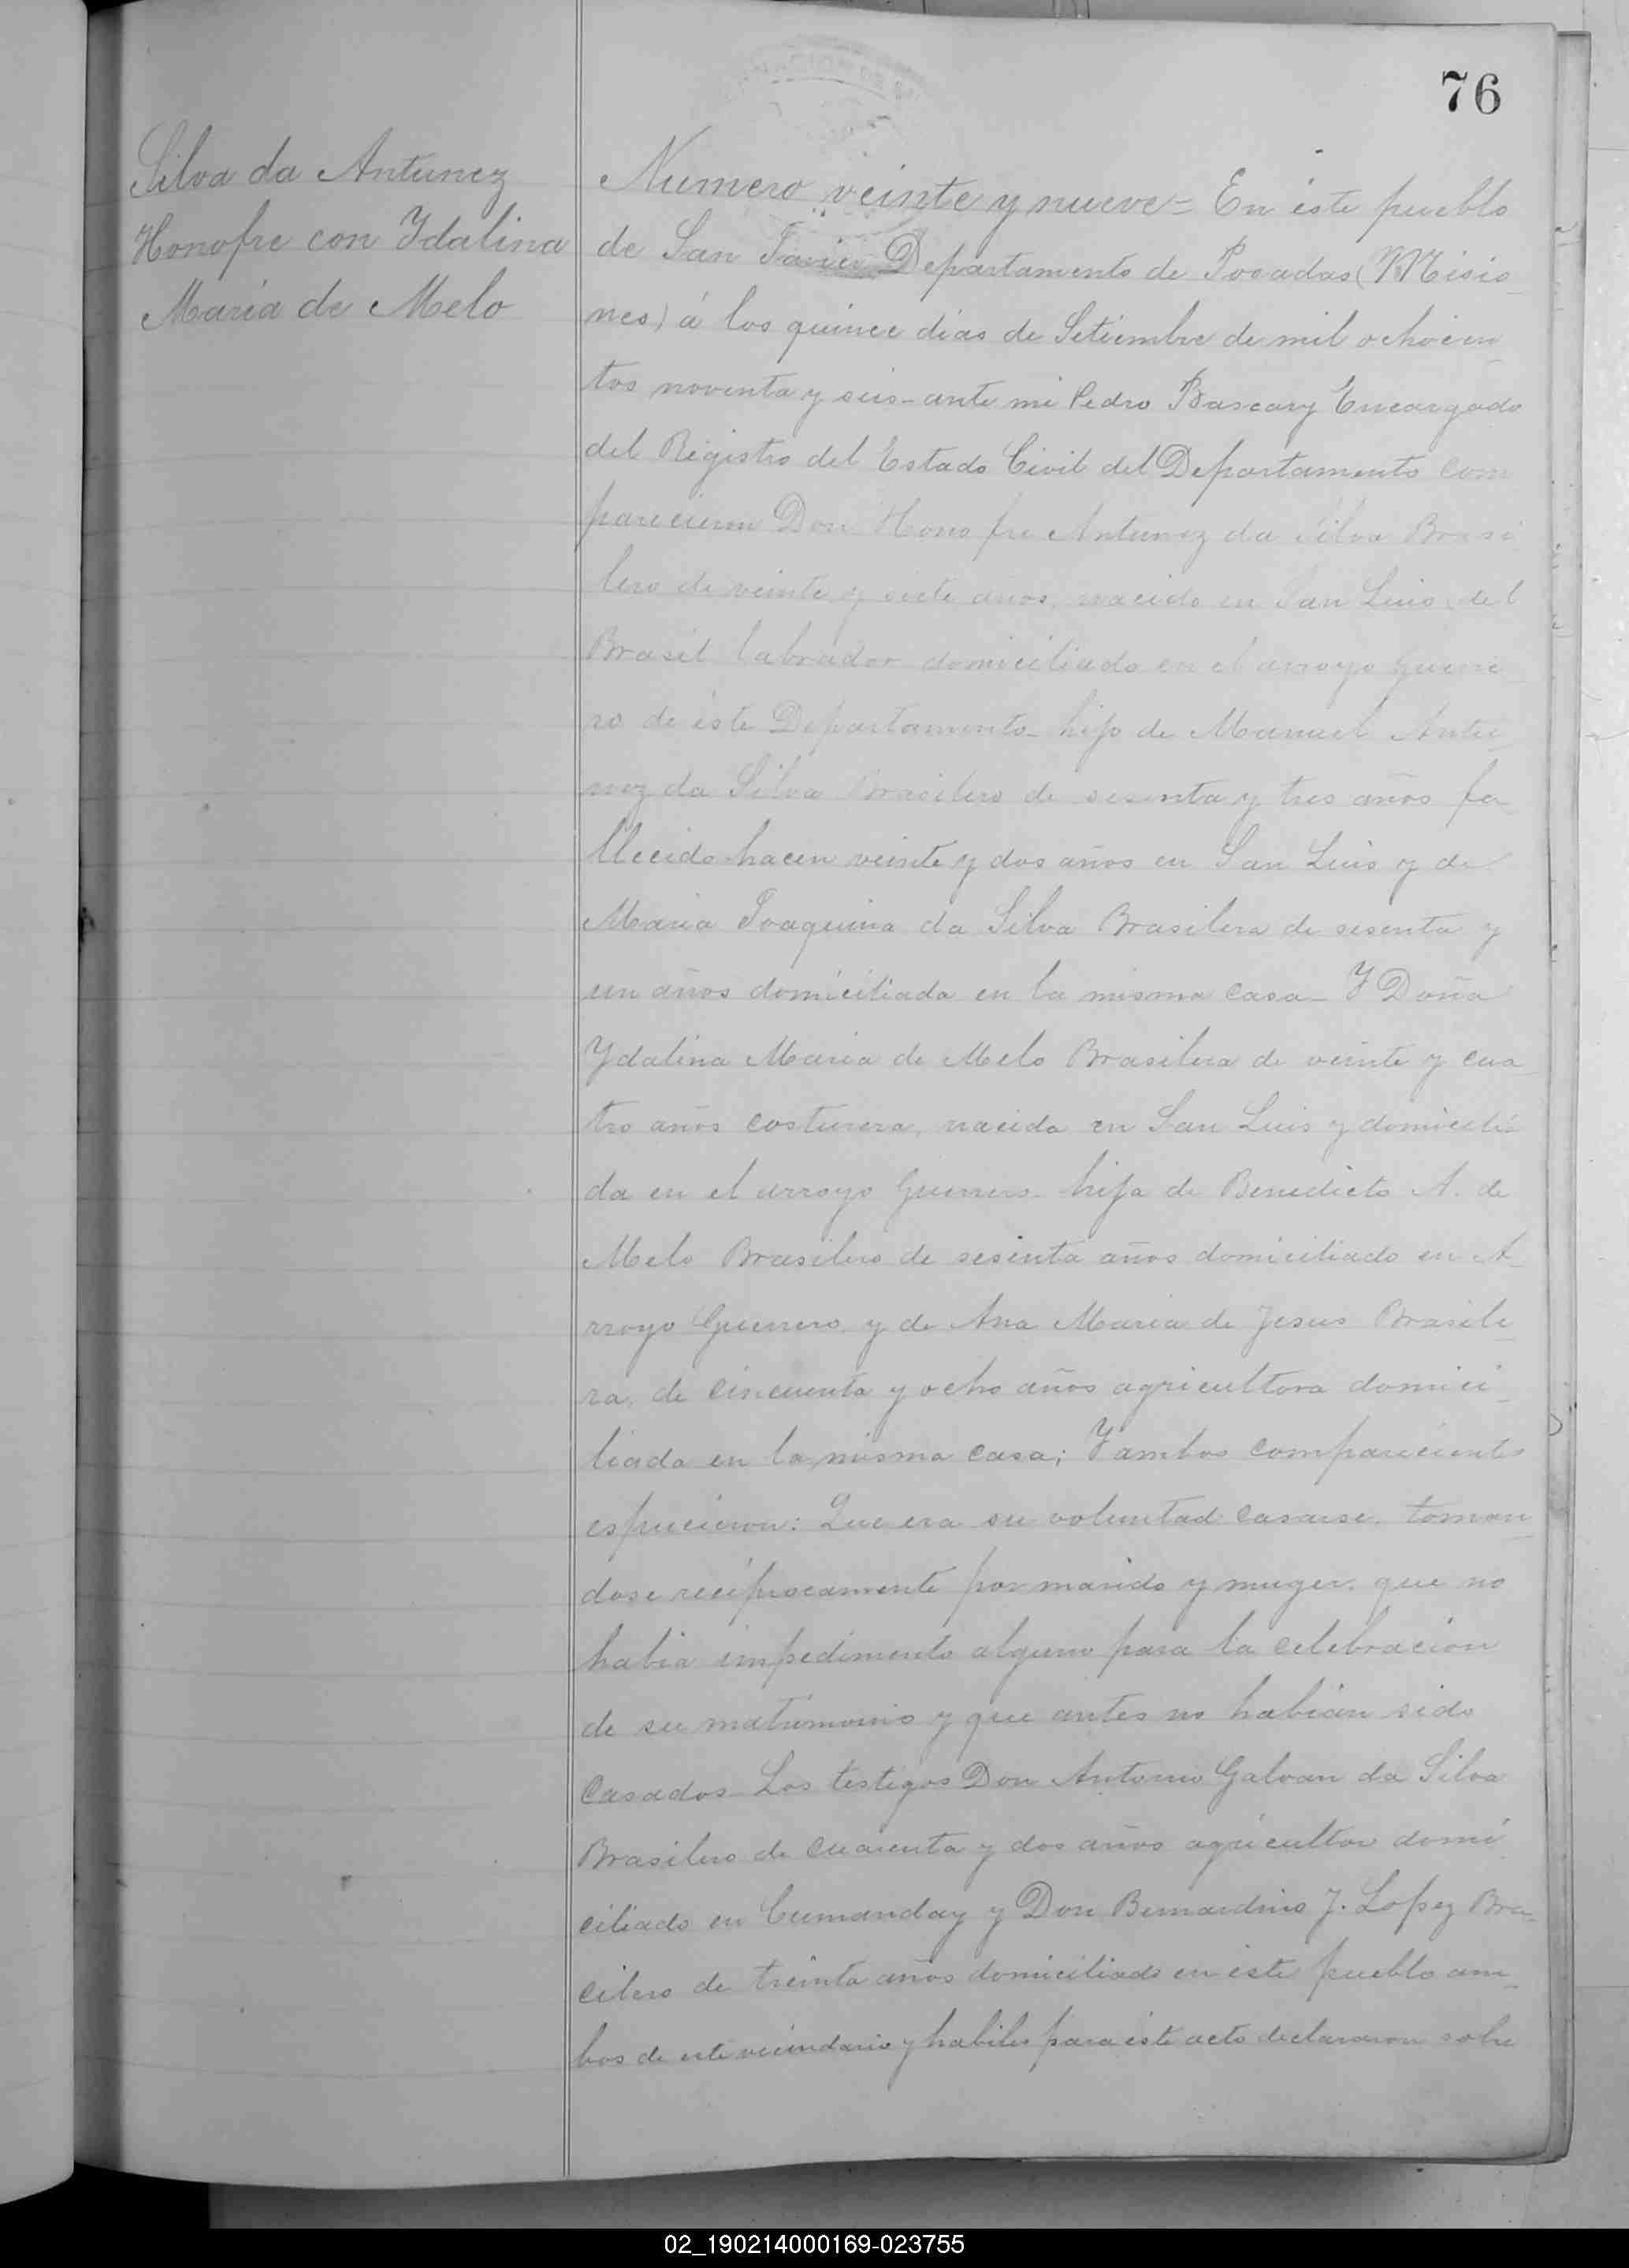 76
Silva da Antunez
Honofre con Ydalina
Maria de Melo
Numero veinte y nueve = En éste pueblo
de San Javier Departamento de Posadas (Misio
nes) á los quince dias de Setiembre de mil ochocien
tos noventa y seis - ante mi Pedro Bascary Encargado
del Registro del Estado Civil del Departamento com
parecieron Don Honofre Antunez da Silva Brasi
lero de veinte y siete años, nacido en San Luis del
Brasil labrador domiciliado en el arroyo guerre
ro de éste Departamento - hijo de Manuel Antu
nez da Silva Brasilero de sesenta y tres años fa
llecido hacen veinte y dos años en San Luis y de
Maria Joaquina da Silva Brasilera de sesenta y
un años domiciliada en la misma casa - Y Doña
Ydalina Maria de Melo Brasilera de veinte y cua
tro años costurera, nacida en San Luis y domicili
da en el arroyo Guerrero - hija de Benedicto A. de
Melo Brasilero de sesenta años domiciliado en A
rroyo Guerrero y de Ana Maria de Jesus Brasile
ra, de cincuenta y ocho años agricultora domici
liada en la misma casa; Y ambos comparecientes
espucieron: Que era su voluntad casarse, toman
dose reciprocamente por marido y muger, que no
habia impedimento alguno para la celebracion
de su matrimonio y que antes no habian sido
casados - Los testigos Don Antonio Galvan da Silva
Brasilero de cuarenta y dos años agricultor domi
ciliado en Cumanday y Don Bernardino J. Lopez Bra
cilero de treinta años domiciliado en éste pueblo am
bos de este vecindario y habiles para éste acto declararon sobre
02_190214000169-023755